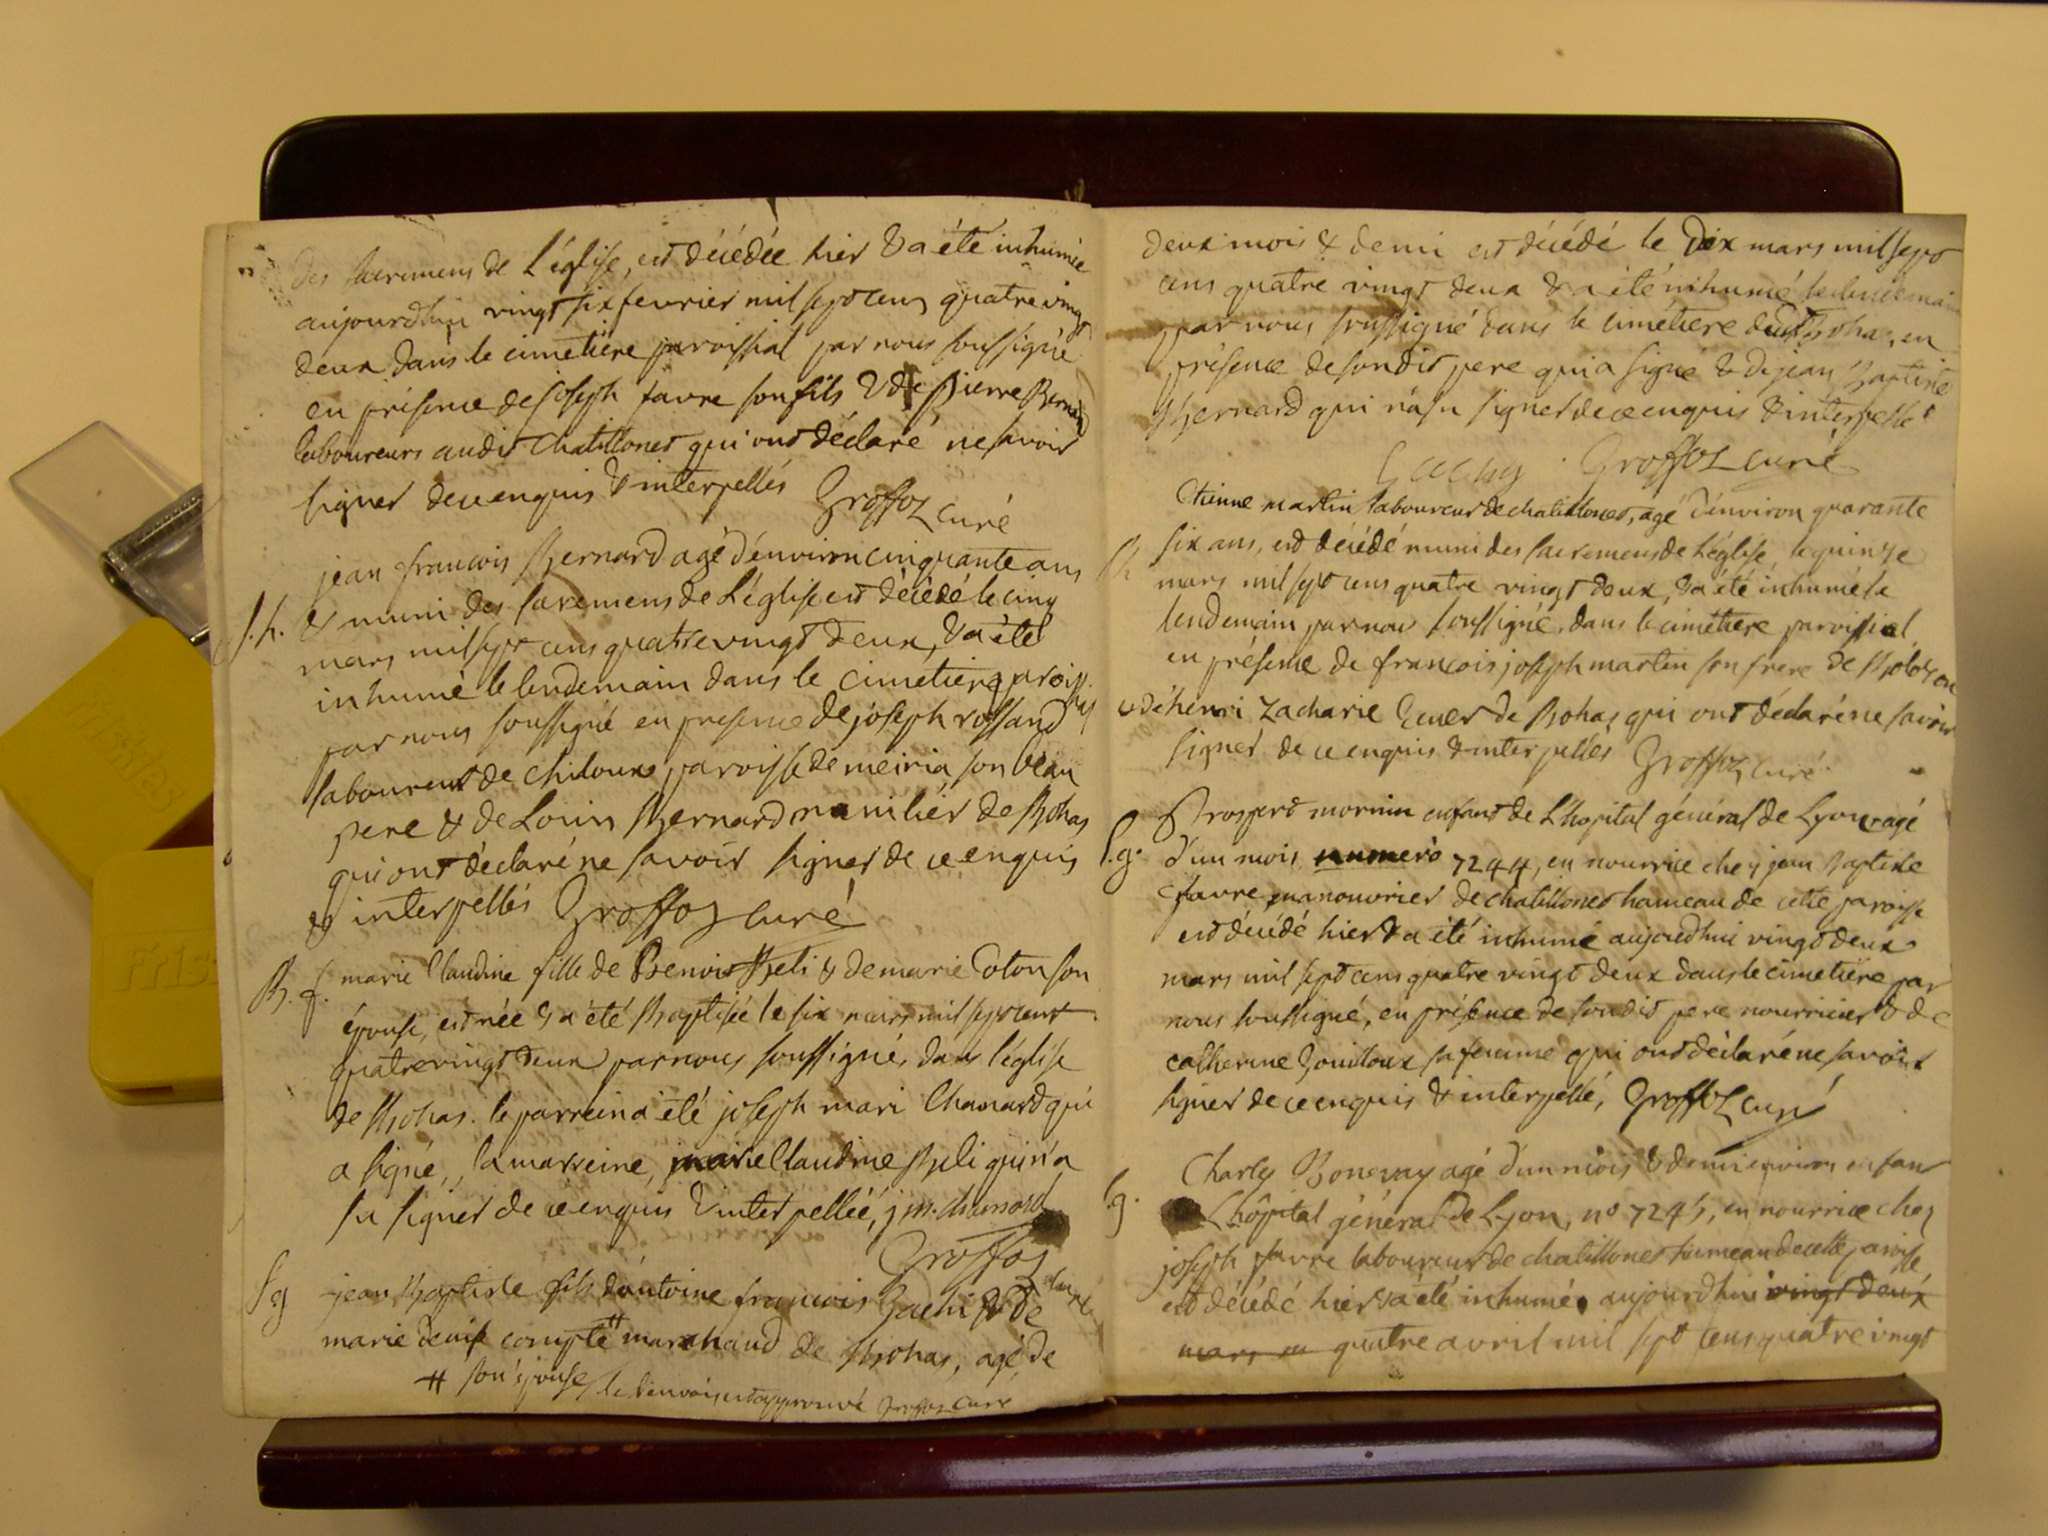 des sacremens de L'église, est décédée hier & a été inhumée
aujourdhui vingt six fevrier mil sept cens quatre vingt
deux dans le cimetière paroissial par nous soussigné
en présence de joseph favre son fils & de Pierre Bernard
laboureurs audit chatillonet qui ont déclaré ne savoir
signer de ce enquis & interpellés Groffoz curé
jean francois Bernard agé d'environ cinquante ans
S. h. & muni des sacremens de L'église est décédé le cinq
mars mil sept cens quatre vingt deux, & a été
inhumé le lendemain dans le cimetiere paroissial
par nous soussigné en presence de joseph rossand
laboureur de chiloux paroisse de meiria son beau
pere & de Louis Bernard de Bohas
qui ont déclaré ne savoir signer de ce enquis
& interpellés Groffoz curé
B. f. marie Claudine fille de Benoit Beli & de marie Doton son
épouse, est née & a été Baptisée le six mars mil sept cent
quatre vingt deux par nous soussigné, dans l'église
de Bohas. le parrein a été joseph mari Chanard qui
a signé, la marreine, marie Claudine Beli qui n'a
su signer de ce enquis & interpellée, j m. chanard
Groffoz curé
S g jean Baptiste fils d'antoine francois & de
marie denise compte # marchand de Bohas, agé de
# son épouse, le renvoi est approuvé Groffoz curé
deux mois & demi est décédé le Dix mars mil sept
cens quatre vingt deux & a été inhumé le lendemain
par nous soussigné dans le cimetiere de Bohas, en
présence de sondit pere qui a signé & de jean Baptiste
Bernard qui n'a su signer de ce enquis & interpellé
Groffoz curé
Etienne martin laboureur de chatillonet, agé d'environ quarante
S h six ans, est décédé muni des sacremens de L'église, le quinze
mars mil sept cens quatre vingt deux, & a été inhumé le
lendemain par nous soussigné, dans le cimetiere paroissial
en présence de francois joseph martin son frere de
& de henri Zacharie de Bohas qui ont déclaré ne savoir
signer de ce enquis & interpellés Groffoz curé
Prospert mornin enfant de L'hopital général de Lyon agé
S. g. d'un mois, numero 7244, en nourrice chez jean Baptiste
favre manouvrier de chatillonet hameau de cette paroisse
est décédé hier & a été inhumé aujourdhui vingt deux
mars mil sept cens quatre vingt deux dans le cimetiere par
nous soussigné, en présence de sondit pere nourricier & de
catherine Gouilloux sa femme qui ont déclaré ne savoir
signer de ce enquis & interpellé, Groffoz curé
Charles Bonevay agé d'un mois & demi environ enfant
S. g. L'hôpital général de Lyon, no 7245, en nourrice chez
joseph favre laboureur de chatillonet hameau de cette paroisse
est décédé hier & a été inhumé aujourdhui vingt deux
mars m quatre avril mil sept cens quatre vingt